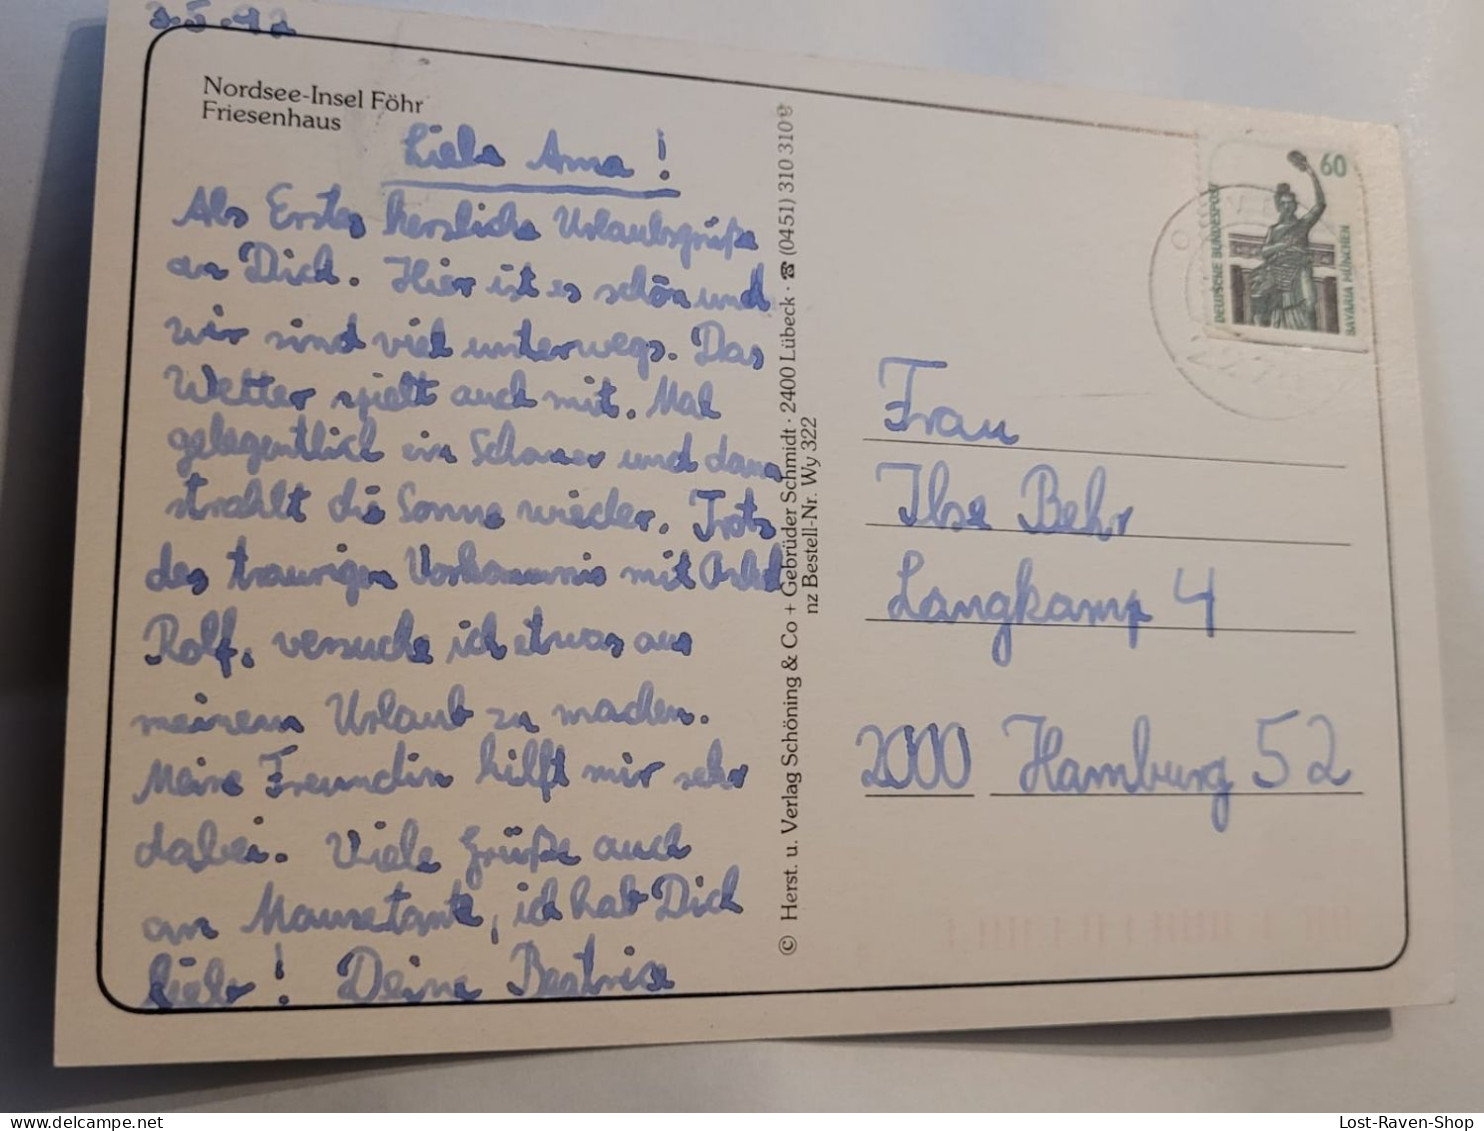 3.5.92
Nordsee-Insel Föhr
Friesenhaus
Liebe Ama!
Als Erstes herzliche Urlaubsgrüße
an Dich. Hier ist es schön und
wir sind viel unterwegs. Das
Wetter spielt auch mit. Mal
gelegentlich ein Schauer und dann
strahlt die Sonne wieder. Trotz
des traurigen Vorkommnis mit Onkel
Rolf, versuche ich etwas aus
meinem Urlaub zu machen.
Meine Freundin hilft mir sehr
dabei. Viele Grüße auch
an Mausetante, ich hab Dich
lieb! Deine Beatrice
© Herst. u. Verlag Schöning & Co + Gebrüder Schmidt · 2400 Lübeck · ☎ (0451) 310 310
nz Bestell-Nr. Wy 322
60
DEUTSCHE BUNDESPOST
BAVARIA MÜNCHEN
Frau
Ilse Behr
Langkamp 4
2000 Hamburg 52
Lost-Raven-Shop